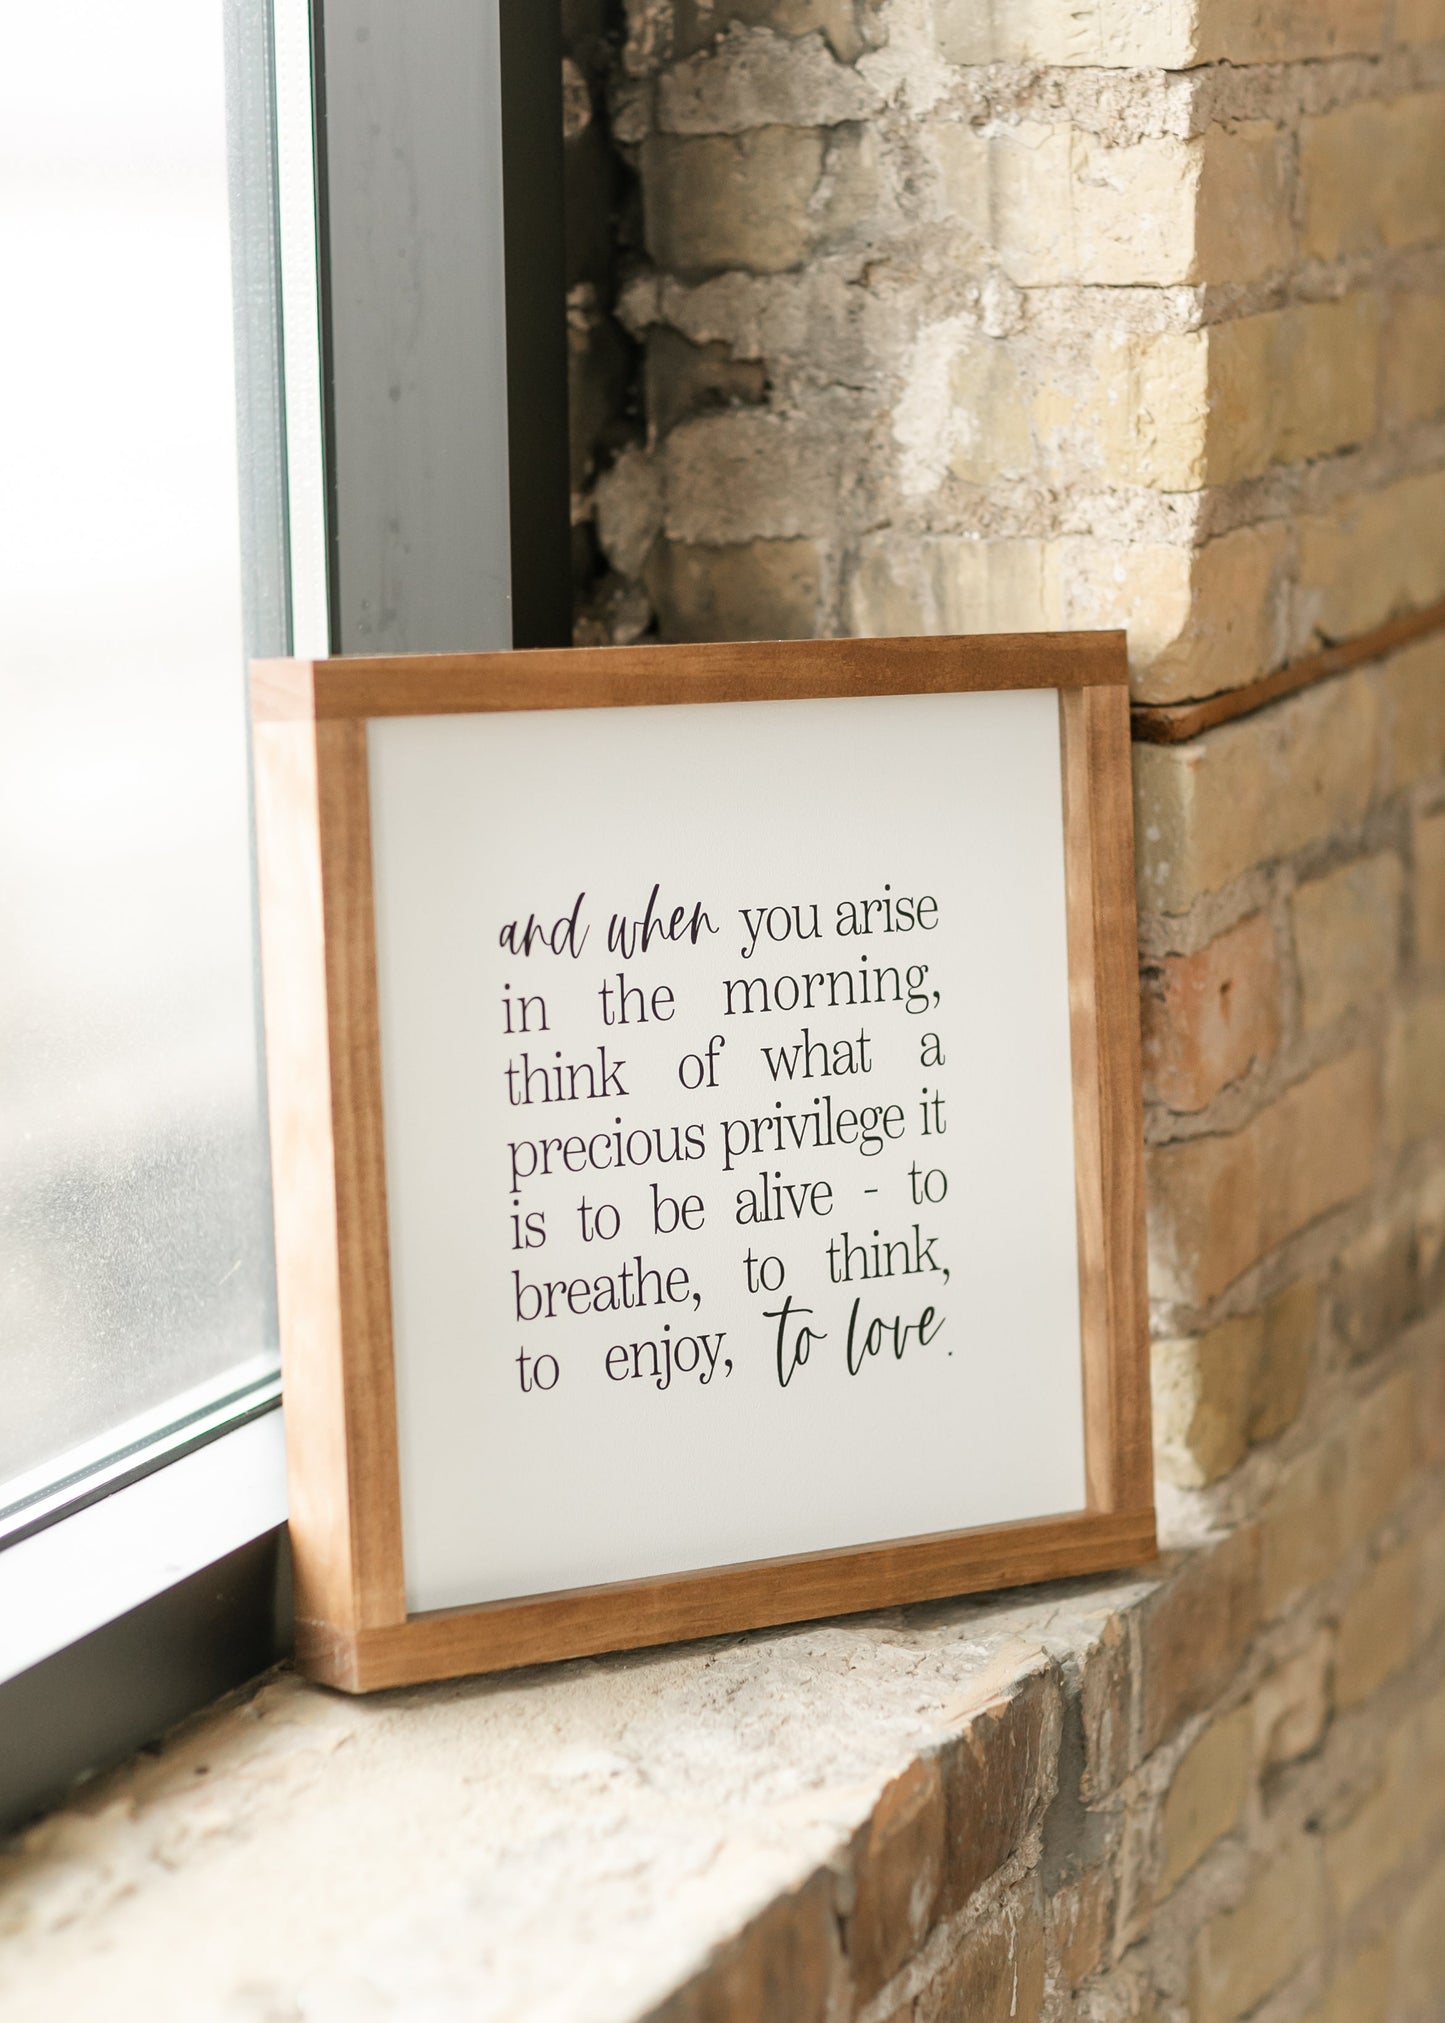 and when you arise
in the morning,
think of what a
precious privilege it
is to be alive - to
breathe, to think,
to enjoy, to love.